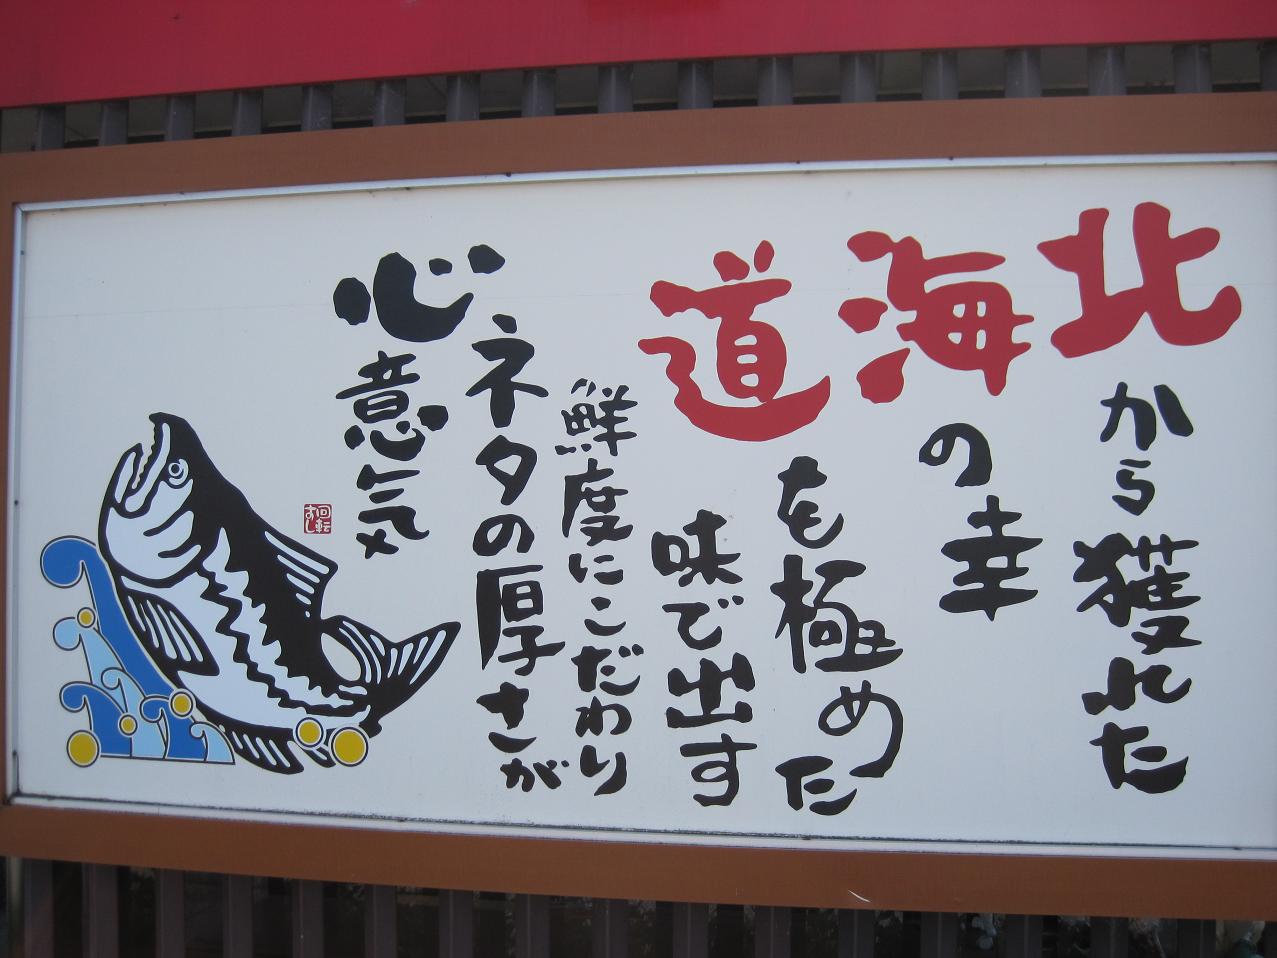 北から獲れた
海の幸
道を極めた
味で出す
鮮度にこだわり
ネタの厚さが
心意気
回転
すし